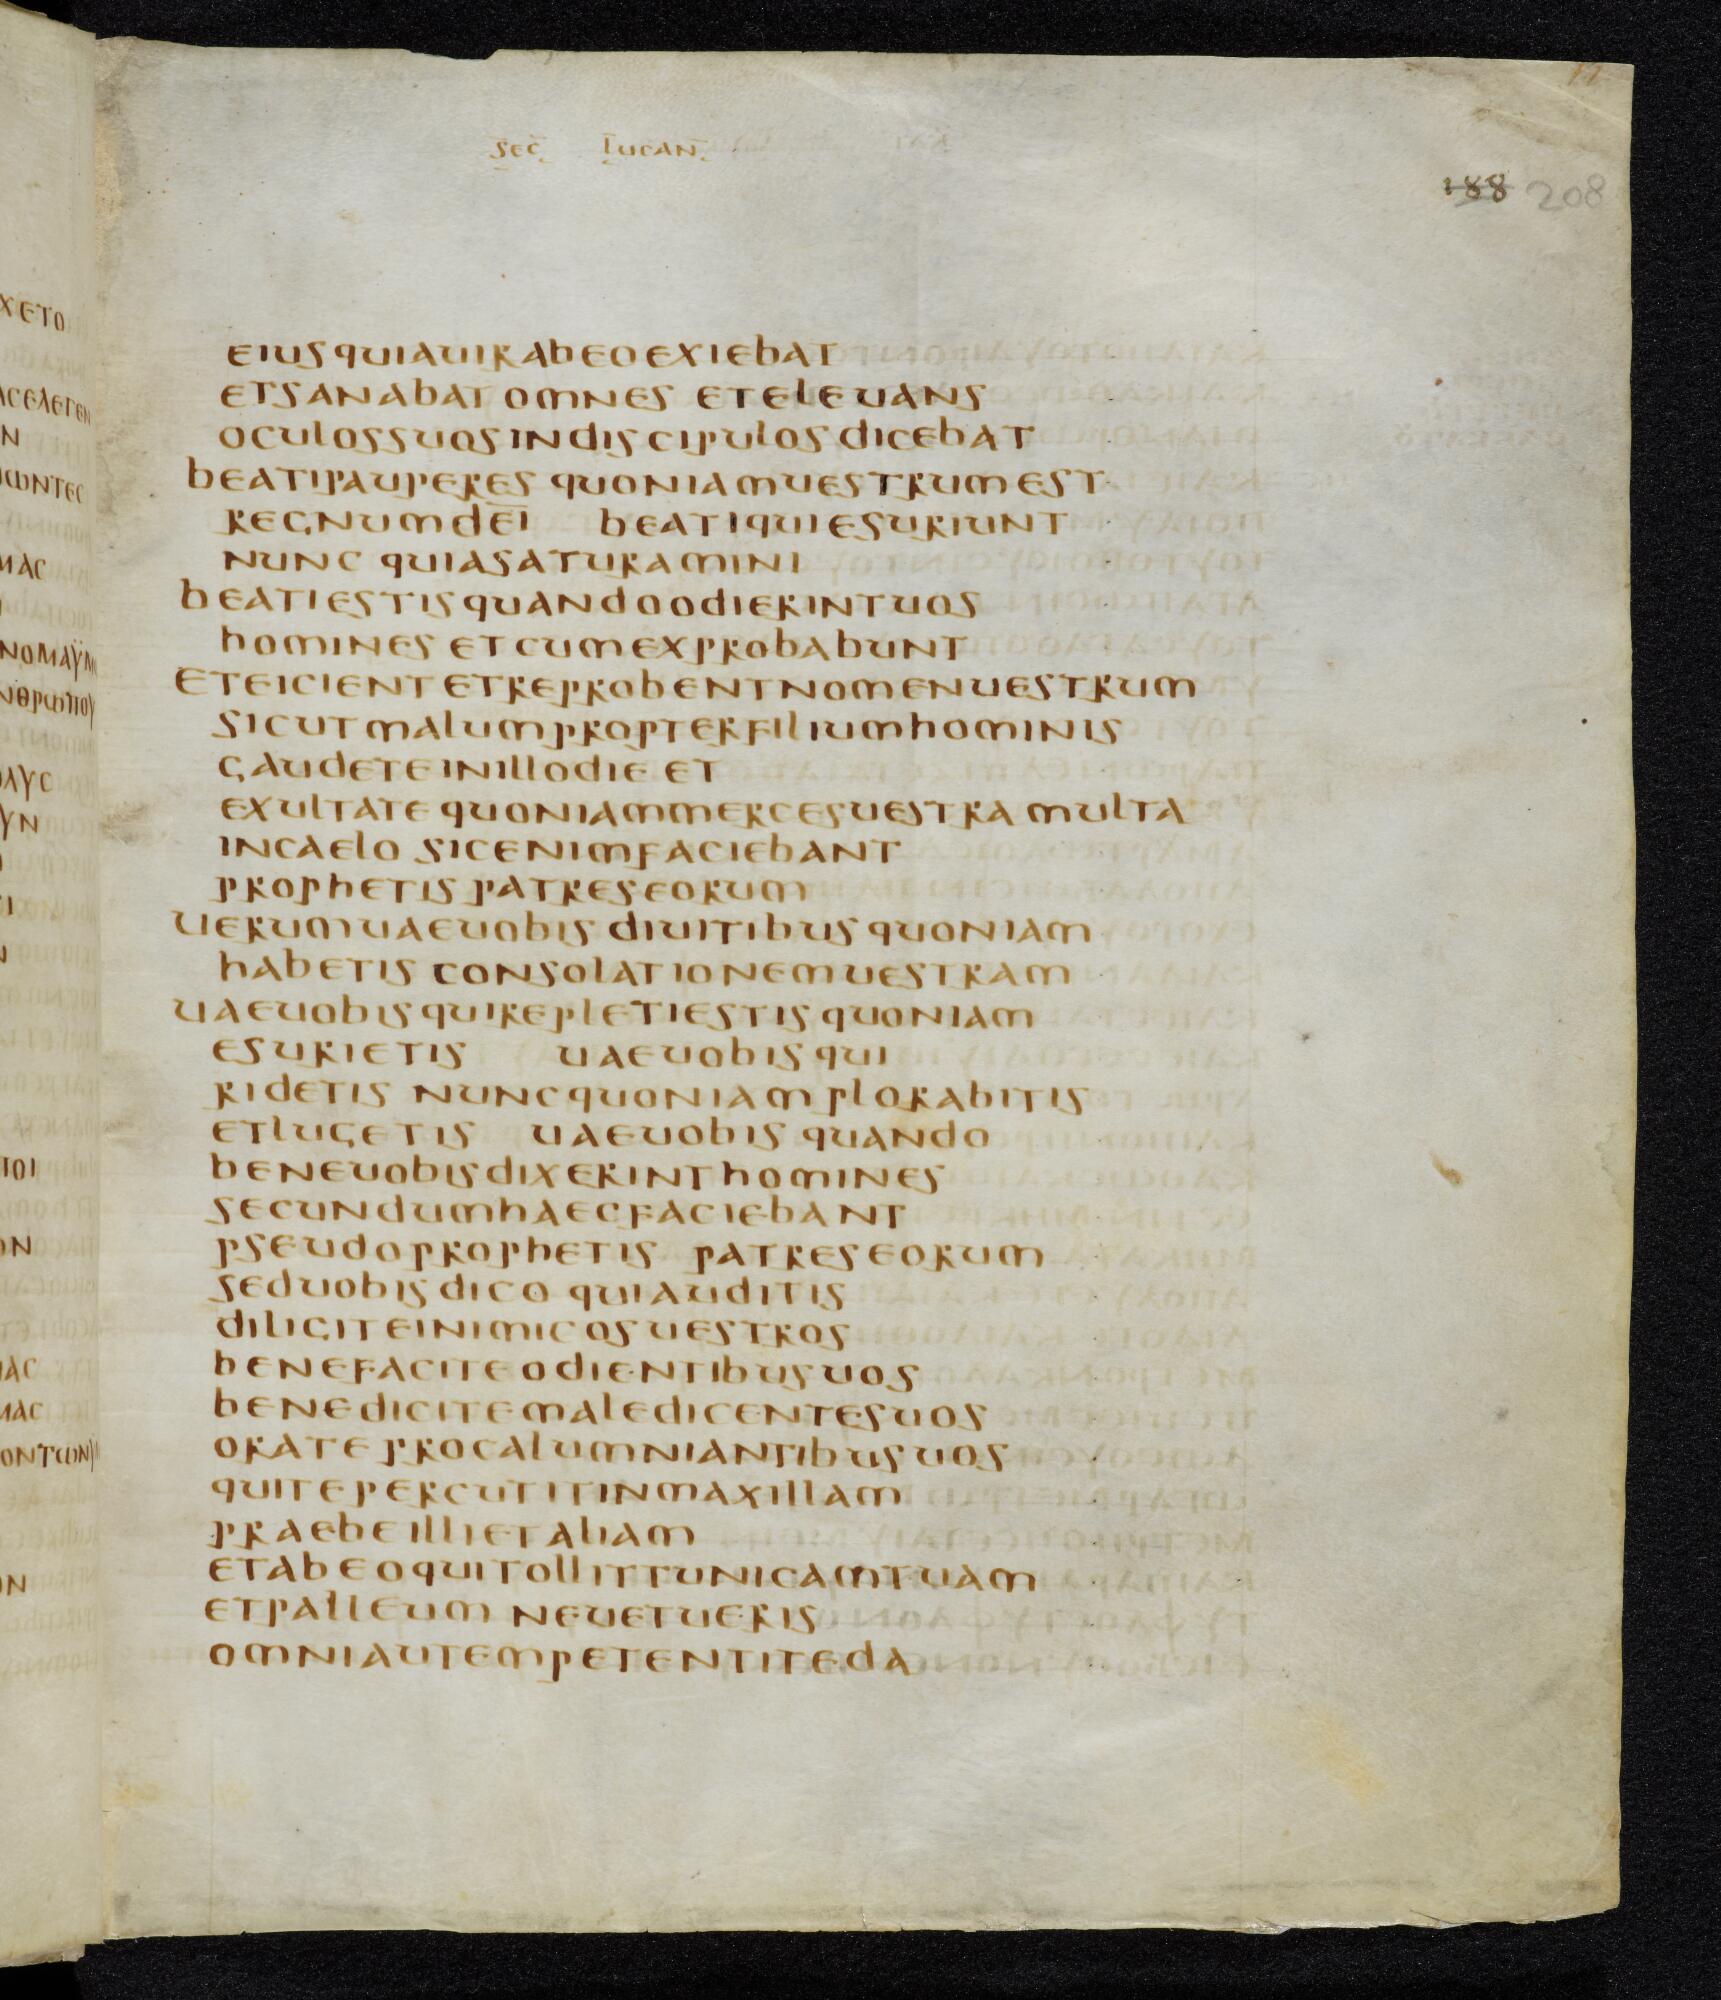 sec̅ lucan̅
188 208
eius quia uir ab eo exiebat
et sanabat omnes et eleuans
oculos suos in discipulos dicebat
beati pauperes quoniam uestrum est
regnum dei̅ beati qui esuriunt
nunc quia saturamini
beati estis quando odierint uos
homines et cum exprobabunt
et eicient et reprobent nomen uestrum
sicut malum propter filium hominis
gaudete in illo die et
exultate quoniam merces uestra multa
in caelo sic enim faciebant
prophetis patres eorum
uerum uae uobis diuitibus quoniam
habetis consolationem uestram
uae uobis qui repleti estis quoniam
esurietis uae uobis qui
ridetis nunc quoniam plorabitis
et lugetis uae uobis quando
bene uobis dixerint homines
secundum haec faciebant
pseudoprophetis patres eorum
sed uobis dico qui auditis
diligite inimicos uestros
benefacite odientibus uos
benedicite maledicentes uos
orate pro calumniantibus uos
qui te percutit in maxillam
praebe illi et aliam
et ab eo qui tollit tunicam tuam
et palleum ne uetueris
omni autem petenti te da